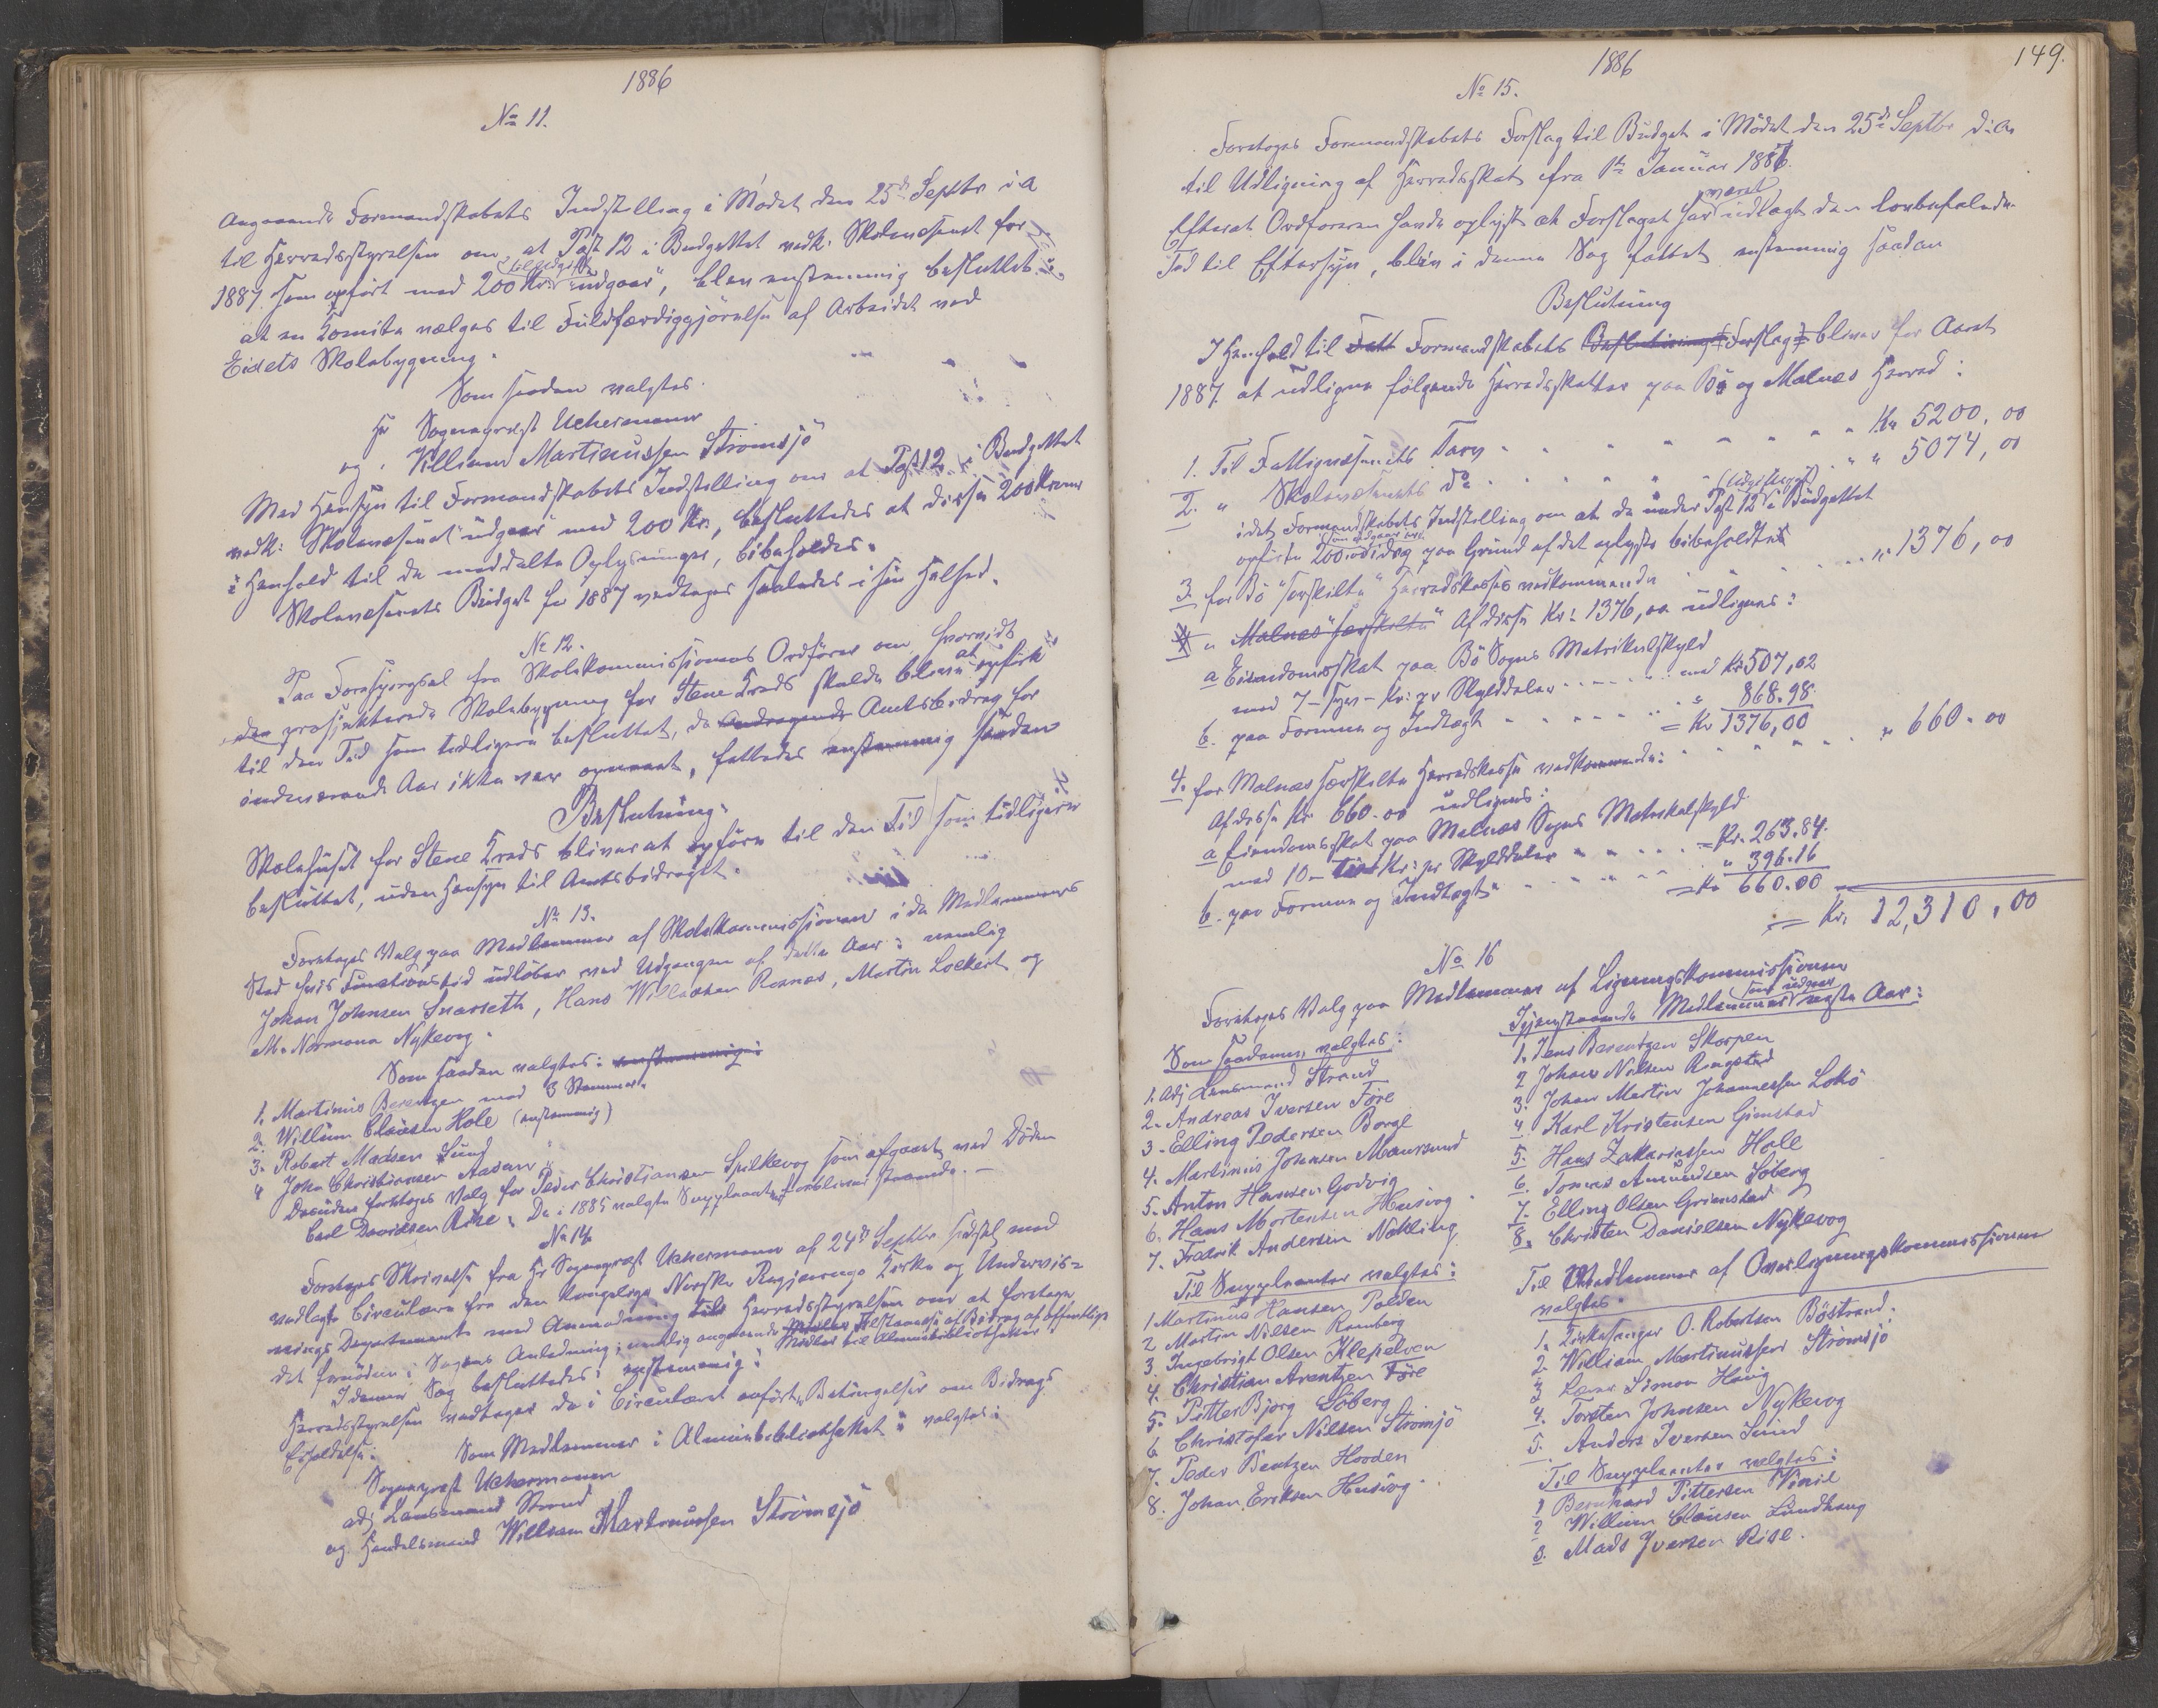 1886
No 11.
Angaaende Formandskabets Indstilling i Mødet den 25de Septbr d. A
til Herredsstyrelsen om at Post 12 i Budgettet vedk. Skolevæsenet for
1887 som opført med 200 Kr. udgaar", blev enstemmig besluttet:
at en Komite vælges til Fuldfærdiggjørelse af Arbeidet ved
Eidets Skolebygning.
Som saadan valgtes.
Hr Sogneprest Uchermann
og Villum Martinussen Strømsjö
Med Hensyn til Formandskabets Indstilling om at Post 12 i Budgettet
vedk: Skolevæsenet udgaar med 200 Kr., besluttedes at disse 200 Kroner
i Henhold til de meddelte Oplysninger, bibeholdes.
Skolevæsenets Budget for 1887 vedtages saaledes i sin Helhed.
No 12.
Paa Forespørgsel fra Skolekommissionens Ordfører om hvorvidt
den prosjekterede Skolebygning for Stene Kreds skulde blive at opføre
til den Tid som tidligere besluttet, da Andragende Amtsbidrag for
indeværende Aar ikke var opnaaet, fattedes enstemmig saadan
Beslutning.
Skolehuset for Stene Kreds bliver at opføre til den Tid som tidligere
besluttet, uden Hensyn til Amtsbidraget.
No 13.
Foretoges Valg paa Medlemmer af Skolekommissionen i de Medlemmers
Sted hvis Funktionstid udløber ved Udgangen af dette Aar: nemlig
Johan Johnsen Snarseth, Hans Willadsen Reznes, Martin Lockert og
M. Normann Nykevog.
Som saadan valgtes: enstemmig:
1. Martinus Berentzen med 3 Stemmer.
2. Willum Clausen Hole (enstemmig)
3. Robert Madsen Sund
4 John Christiansen Aasan
Desuden foretoges Valg for Peder Christiansen Spilkevog som afgaaet ved Døden
Carl Davidsen Rise. De i 1885 valgte Supleanter forbliver staaende.
No 14
Foretoges Skrivelse fra Hr Sogneprest Uchermann af 24de Septbr sidstl. med
vedlagte Circulære fra den Kongelige Norske Regjerings Kirke og Undervis=
nings Departement med Anmodning til Herredsstyrelsen om at foretage
det fornødne i Sagens Anledning, nemlig angaaende Tilstaaelse af Bidrag af offentlige
Midler til Almuebibliotheker.
I denne Sag besluttedes enstemmig:
Herredsstyrelsen vedtager de i Circulæret anførte Betingelser om Bidrags
Erholdelse. Som Medlemmer i Almuebibliotheket valgtes:
Sogneprest Uchermann
adj Lensmand Strand
og Handelsmand Willum Martinussen Strömsjö
1886
149.
No 15.
Foretoges Formandskabets Forslag til Budget i Mødet den 25de Septbr d. A
til Udligning af Herredsskat fra 1ste Januar 1887.
Efterat Ordføreren havde oplyst at Forslaget har været udlagt den lovbefalede
Tid til Eftersyn, blev i denne Sag fattet enstemmig saadan
Beslutning
I Henhold til Fatt Formandskabets Beslutning Forslag bliver for Aaret
1887 at udligne følgende Herredsskatter paa Bø og Malnes Herred:
1. Til Fattigvæsenets Tarv " " " Kr 5200,00
2. " Skolevæsenets do " " 5074,00
idet Formandskabets Indstilling om at de under Post 12 i Budgettet (Udgifterne)
opførte 200 som udgaar paa Grund af det oplyste bibeholdtes
3. for Bø "særskilte" Herredskasses vedkommende " 1376,00
" Malnes "særskilte" Af disse Kr: 1376,00 udlignes:
a Eiendomsskat paa Bö Sogns Matrikulskyld
med 7 - syv - Kr: pr Skylddaler med Kr 507,02
b. paa Formue og Indtægt " 868.98
= Kr 1376,00
4. for Malnes særskilte Herredskasse vedkommende: " 660.00
Af disse Kr 660.00 udlignes:
a Eiendomsskat paa Malnes Sogns Matrikulskyld
med 10 - ti Kr: pr Skylddaler = Kr. 263.84.
b. paa Formue og Indtægt " 396.16
= Kr 660.00
= Kr. 12,310,00
No 16
Foretoges Valg paa Medlemmer af Ligningskommissionen
Som saadanne valgtes:
1. adj Lensmand Strand
2. Andreas Iversen Føre
3. Elling Pedersen Borge
4. Martinus Johnsen Maursund
5. Anton Hansen Godvig
6. Hans Mortensen Husvog
7. Fredrik Andersen Nykling
Til Supleanter valgtes:
1 Martinus Hansen Polden
2 Martin Nilsen Ramberg
3. Ingebrigt Olsen Klepelven
4. Christian Arentzen Føre
5. Petter Bjorg Søberg
6 Christofer Nilsen Strømsjö
7. Peder Bentzen Hovden
8. Johan Eriksen Husvog.
Igjenstaaende Medlemmer som udgaar næste Aar:
1. Jens Berentzen Skorpen
2 Johan Nilsen Ringstad
3. Johan Martin Johannessen Lokö
4. Karl Kristensen Gimstad
5. Hans Zakariassen Hole
6. Tomas Amundsen Søberg
7. Elling Olsen Grimstad
8. Christen Danielsen Nykevog
Til Medlemmer af Overligningskommissionen
valgtes.
1. Kirkesanger O. Robertson Böstrand.
2. William Martinussen Strømsjö
3 Lærer Simon Haug
4. Torsten Johnsen Nykevog
5. Anders Iversen Sund
Til Supleanter valgtes:
1 Bernhard Pittersen Vinie
2 Willum Clausen Lundhaug
3. Mads Iversen Rise.